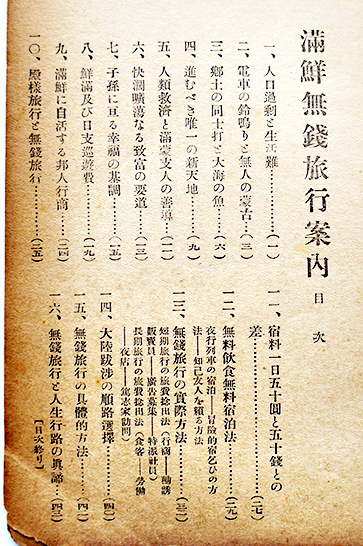 満鮮無錢旅行案內
目次
一、人口過剩と生活難…………(一)
二、電車の鈴鳴りと無人の蒙古…(三)
三、鄕土の同士打と大海の魚……(六)
四、進むべき唯一の新天地………(九)
五、人類救濟と滿蒙支人の善導…(一一)
六、快濶曠蕩なる致富の要道……(一三)
七、子孫に亘る幸福の基調………(一五)
八、鮮滿及び日支巡遊費…………(一九)
九、滿鮮に自活する邦人行商……(二四)
一〇、殿樣旅行と無錢旅行………(二五)
一一、宿料一日五十圓と五十錢との
差……………………(二七)
一二、無料飮食無料宿泊法………(二九)
夜行列車の宿泊――冒險的宿乞ひの方
法――知己友人を賴る方法
一三、無錢旅行の實際方法………(三一)
短期旅行の旅費捻出法(行商――勸誘
販賣員――廣告募集――特派社員)
長期旅行の旅費捻出法(食客――勞働
――夜店――篤志家訪問)
一四、大陸跋涉の順路選擇………(四一)
一五、無錢旅行の具體的方法……(四二)
一六、無錢旅行と人生行路の眞諦…(四三)
【目次終り】